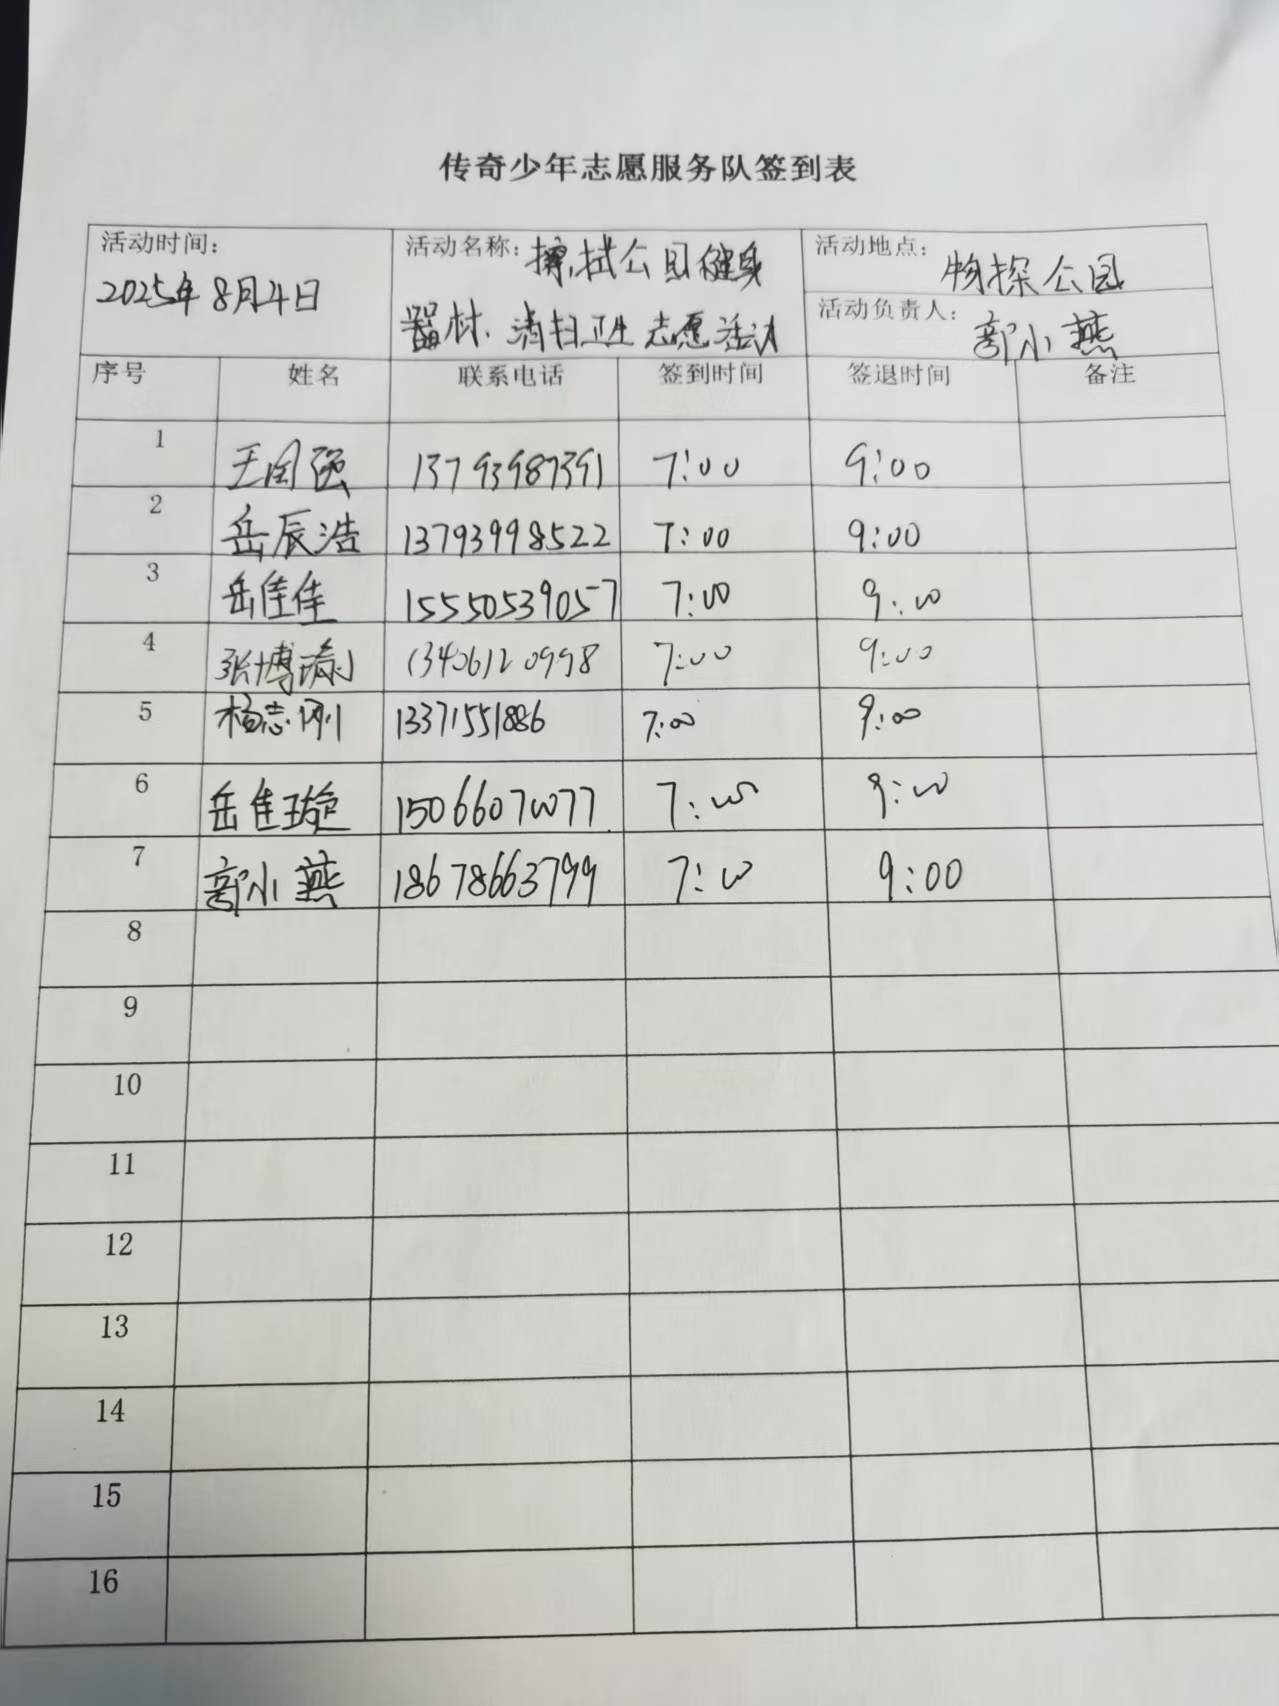 传奇少年志愿服务队签到表
活动时间：
2025年8月4日
活动名称：擦拭公园健身
器材、清扫卫生志愿活动
活动地点：物探公园
活动负责人：郭小燕
序号 姓名 联系电话 签到时间 签退时间 备注
1 王国强 13793987391 7:00 9:00
2 岳辰浩 13793998522 7:00 9:00
3 岳佳佳 15550539057 7:00 9:00
4 张博 13406120998 7:00 9:00
5 杨志刚 13371551886 7:00 9:00
6 岳佳璇 15066070077 7:00 9:00
7 郭小燕 18678663799 7:00 9:00
8
9
10
11
12
13
14
15
16